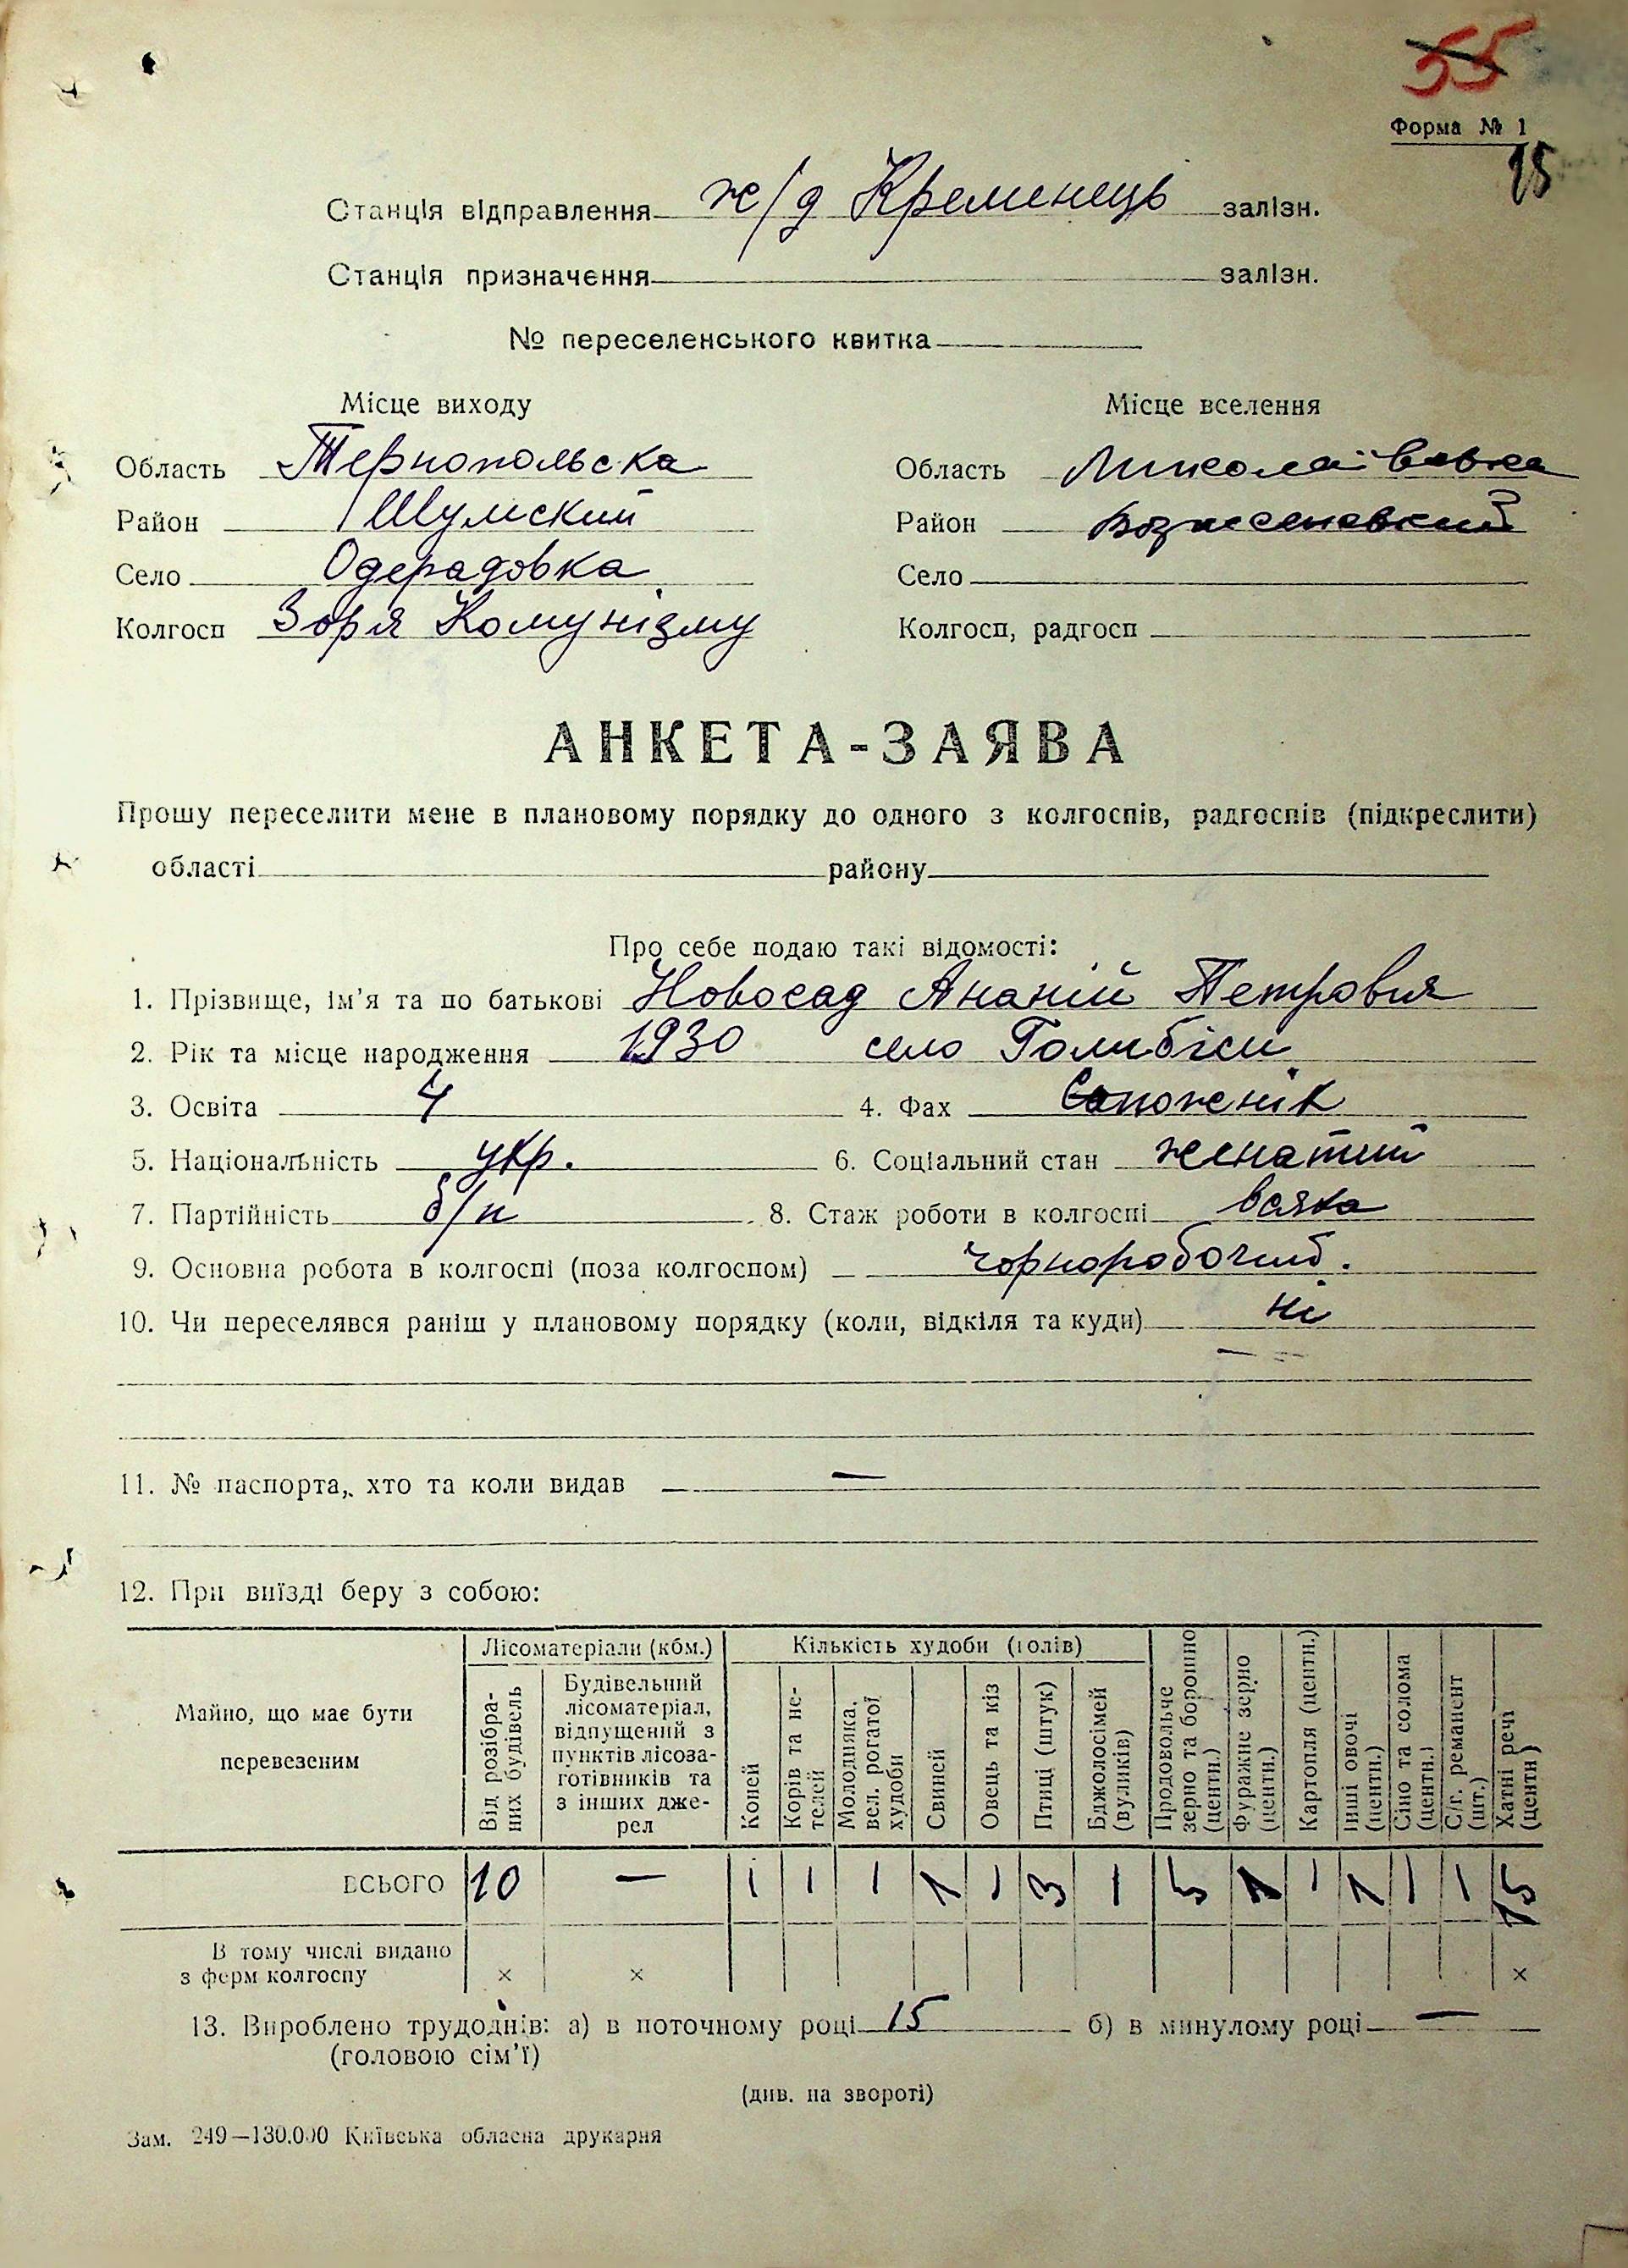 55
Форма № 1
Станція відправлення ж/д Кременець залізн.
Станція призначення залізн.
№ переселенського квитка
Місце виходу
Місце вселення
Область Тернопольска
Область Миколаївська
Район Шумский
Район
Село Одерадовка
Село
Колгосп Зоря Комунізму
Колгосп, радгосп
АНКЕТА-ЗАЯВА
Прошу переселити мене в плановому порядку до одного з колгоспів, радгоспів (підкреслити)
області району
Про себе подаю такі відомості:
1. Прізвище, ім'я та по батькові Новосад Ананій Петрович
2. Рік та місце народження 1930 село
3. Освіта 4 4. Фах Сапожнік
5. Національність укр. 6. Соціальний стан женатий
7. Партійність б/п 8. Стаж роботи в колгоспі всяка
9. Основна робота в колгоспі (поза колгоспом) — чорноробочий.
10. Чи переселявся раніш у плановому порядку (коли, відкіля та куди) ні
11. № паспорта, хто та коли видав —
12. При виїзді беру з собою:
Майно, що має бути перевезеним
Лісоматеріали (кбм.)
Від розібраних будівель
Будівельний лісоматеріал, відпущений з пунктів лісозаготівників та з інших джерел
Кількість худоби (голів)
Коней
Корів та нетелей
Молодняка вел. рогатої худоби
Свиней
Овець та кіз
Птиці (штук)
Бджолосімей (вуликів)
Продовольче зерно та борошно (центн.)
Фуражне зерно (центн.)
Картопля (центн.)
Інші овочі (центн.)
Сіно та солома (центн.)
С/г. реманент (шт.)
Хатні речі (центн)
ВСЬОГО 10 — | | | 1 | 3 | 5 1 | 1 | | 15
В тому числі видано
з ферм колгоспу × × ×
13. Вироблено трудоднів: а) в поточному році 15 б) в минулому році —
(головою сім'ї)
(див. на звороті)
Зам. 249—130.000 Київська обласна друкарня